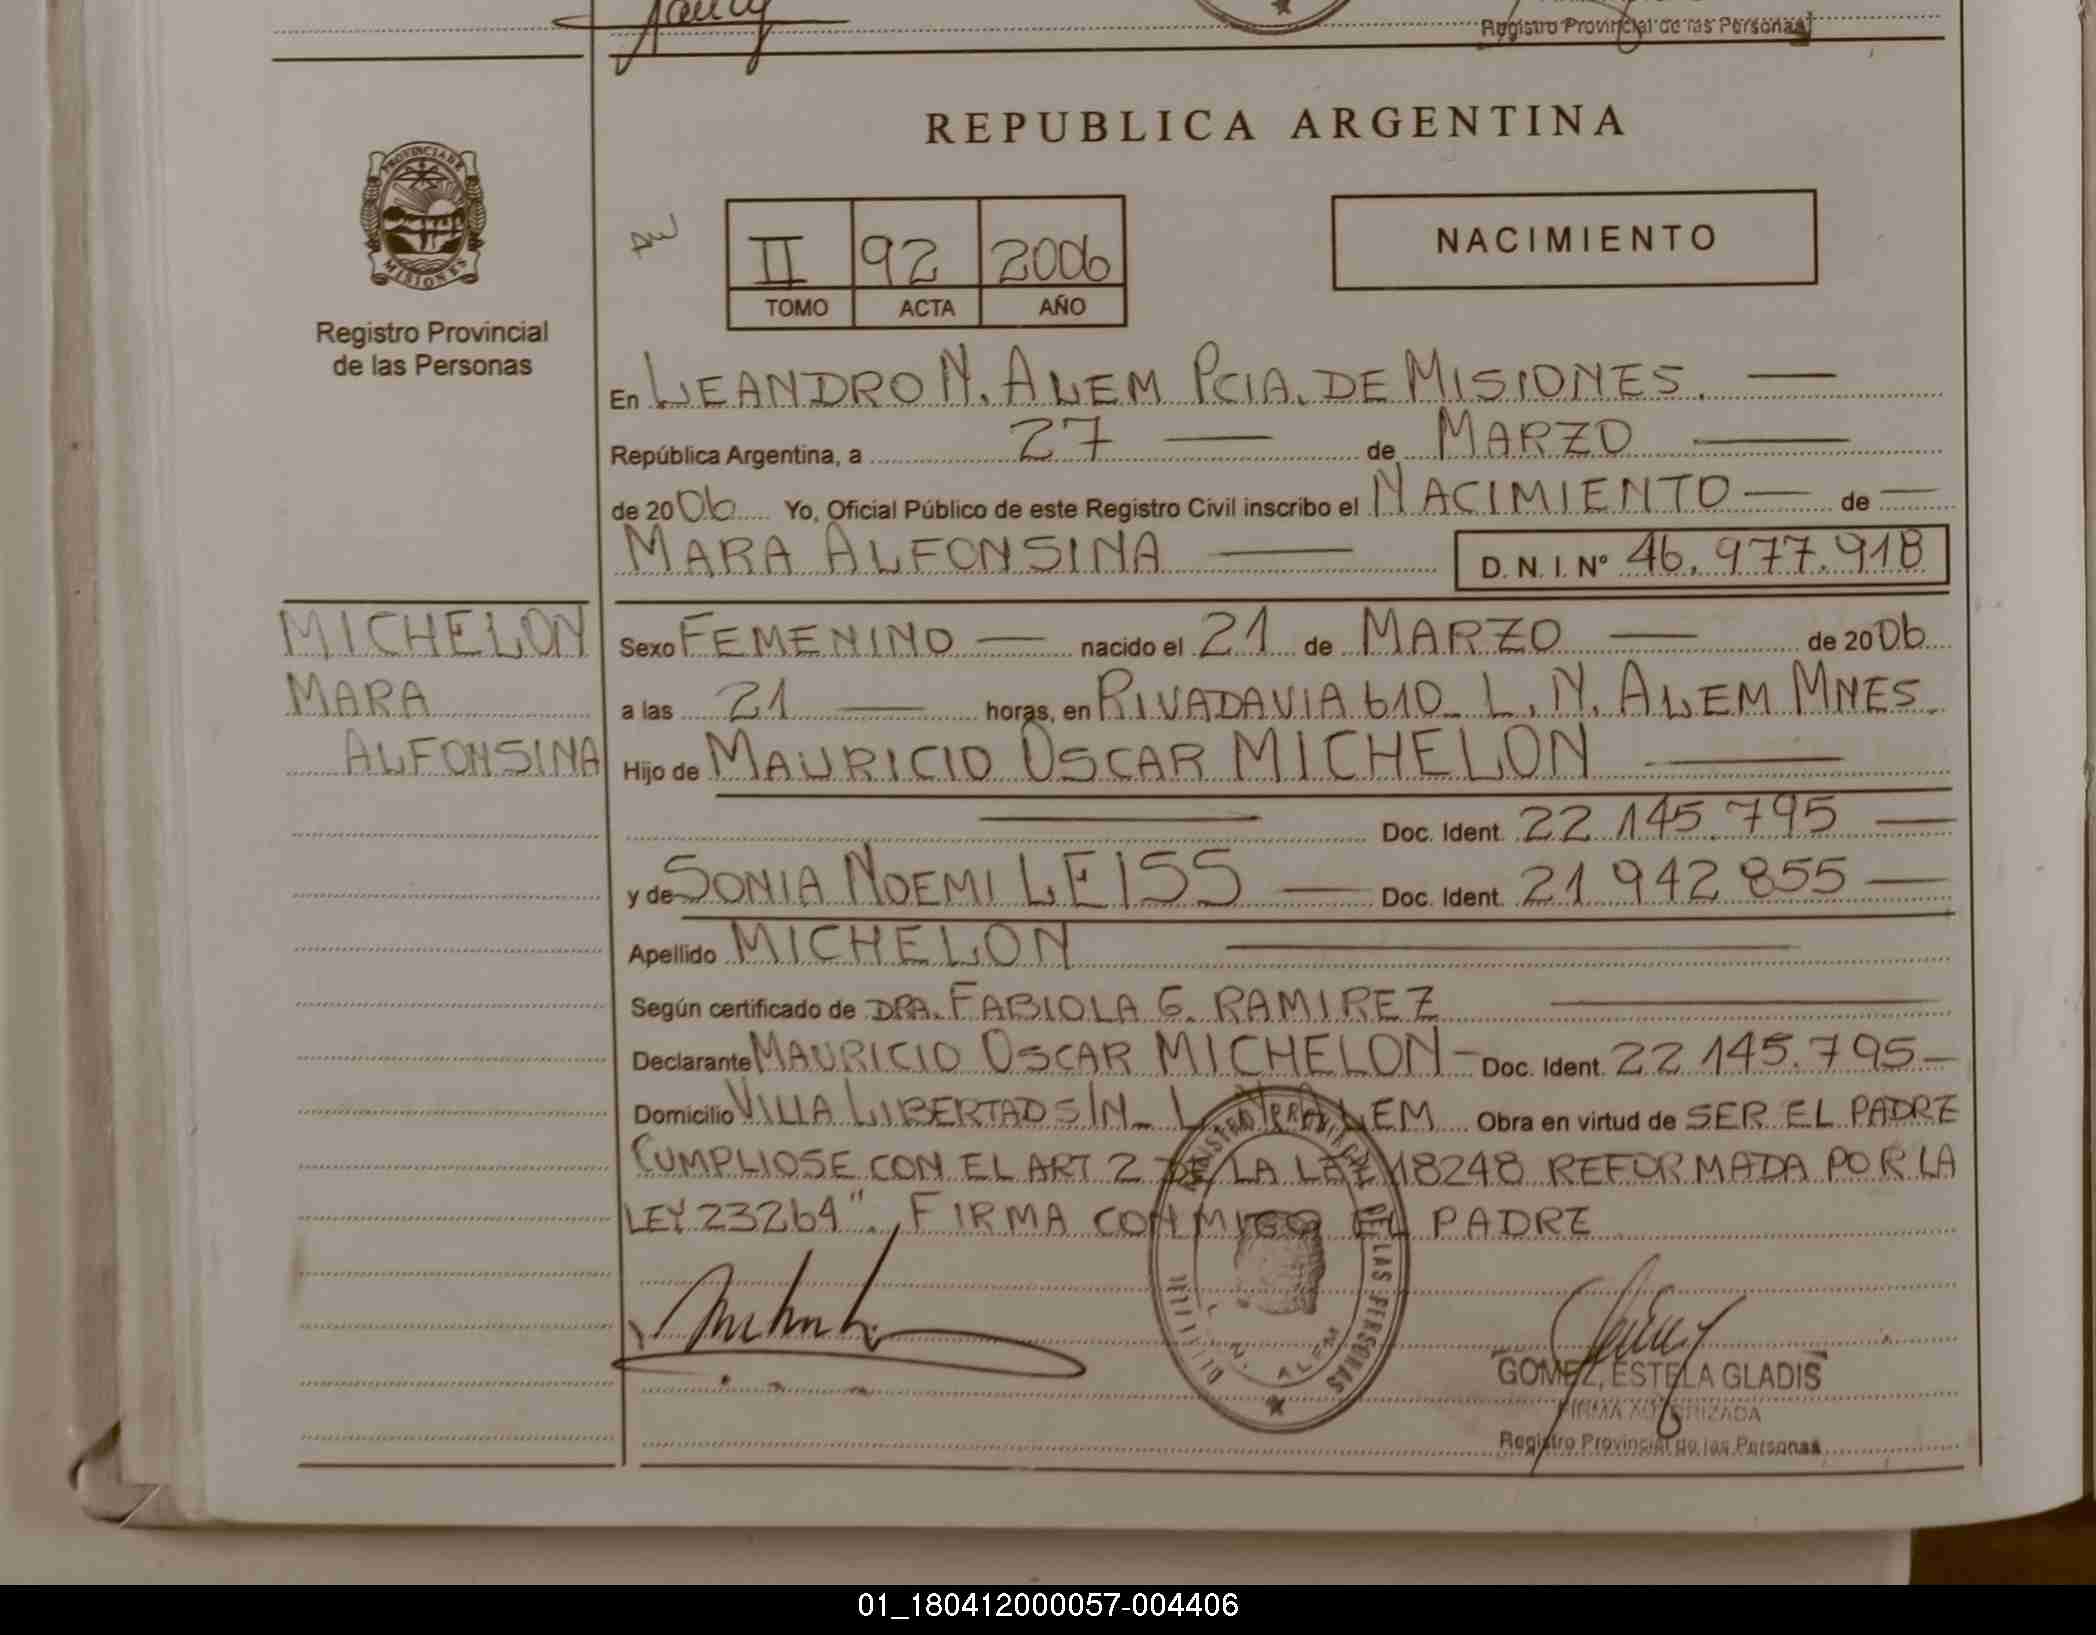 Registro Provincial de las Personas
PROVINCIA DE
MISIONES
Registro Provincial
de las Personas
REPUBLICA ARGENTINA
II 92 2006
TOMO ACTA AÑO
NACIMIENTO
En LEANDRO N. ALEM PCIA. DE MISIONES.
República Argentina, a 27 de MARZO
de 2006 Yo, Oficial Público de este Registro Civil inscribo el NACIMIENTO de
MARA ALFONSINA D. N. I. Nº 46.977.918
MICHELON
MARA
ALFONSINA
Sexo FEMENINO nacido el 21 de MARZO de 2006
a las 21 horas, en RIVADAVIA 610_ L. N. ALEM MNES.
Hijo de MAURICIO OSCAR MICHELON
Doc. Ident. 22.145.795
y de SONIA NOEMI LEISS Doc. Ident. 21.942.855
Apellido MICHELON
Según certificado de DRA. FABIOLA G. RAMIREZ
Declarante MAURICIO OSCAR MICHELON - Doc. Ident. 22.145.795
Domicilio VILLA LIBERTAD S/N_ L. N. ALEM Obra en virtud de SER EL PADRE
CUMPLIOSE CON EL ART 2 DE LA LEY 18248 REFORMADA POR LA
LEY 23264". FIRMA CONMIGO EL PADRE
REGISTRO PROVINCIAL DE LAS PERSONAS
L. N. ALEM
GOMEZ, ESTELA GLADIS
FIRMA AUTORIZADA
Registro Provincial de las Personas
01_180412000057-004406